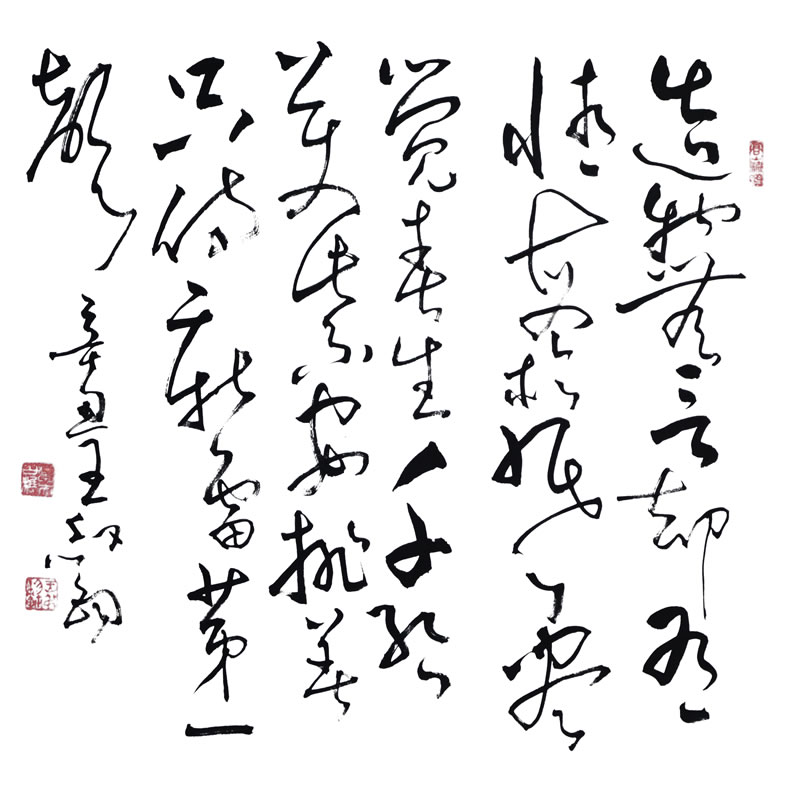 造物无言却有
情每於寒盡
覺春生千紅
萬紫安排著
只待新雷第一
聲
辛丑王